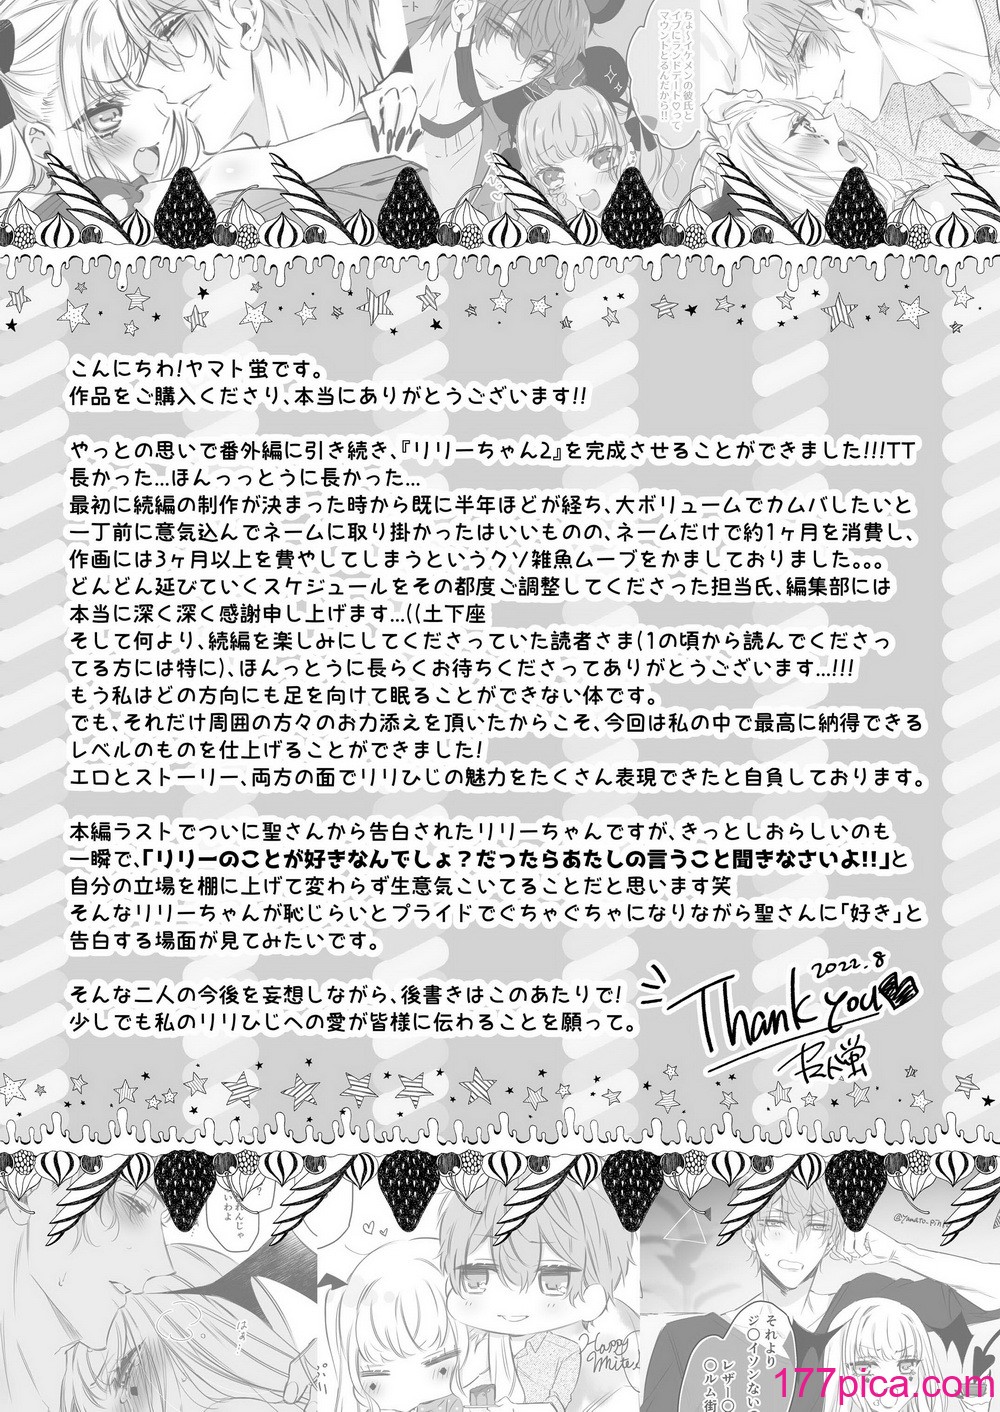 ちょ〜イケメンの彼氏と
イブにランドデート♡って
マウントとるんだから!!
こんにちわ!ヤマト蛍です。
作品をご購入くださり、本当にありがとうございます!!
やっとの思いで番外編に引き続き、『リリーちゃん2』を完成させることができました!!!TT
長かった...ほんっっとうに長かった...
最初に続編の制作が決まった時から既に半年ほどが経ち、大ボリュームでカムバしたいと
一丁前に意気込んでネームに取り掛かったはいいものの、ネームだけで約1ヶ月を消費し、
作画には3ヶ月以上を費やしてしまうというクソ雑魚ムーブをかましておりました。。。
どんどん延びていくスケジュールをその都度ご調整してくださった担当氏、編集部には
本当に深く深く感謝申し上げます...((土下座
そして何より、続編を楽しみにしてくださっていた読者さま(1の頃から読んでくださっ
てる方には特に)、ほんっとうに長らくお待ちくださってありがとうございます...!!!
もう私はどの方向にも足を向けて眠ることができない体です。
でも、それだけ周囲の方々のお力添えを頂いたからこそ、今回は私の中で最高に納得できる
レベルのものを仕上げることができました!
エロとストーリー、両方の面でリリひじの魅力をたくさん表現できたと自負しております。
本編ラストでついに聖さんから告白されたリリーちゃんですが、きっとしおらしいのも
一瞬で、「リリーのことが好きなんでしょ?だったらあたしの言うこと聞きなさいよ!!」と
自分の立場を棚に上げて変わらず生意気こいてることだと思います笑
そんなリリーちゃんが恥じらいとプライドでぐちゃぐちゃになりながら聖さんに「好き」と
告白する場面が見てみたいです。
そんな二人の今後を妄想しながら、後書きはこのあたりで!
少しでも私のリリひじへの愛が皆様に伝わることを願って。
2022.8
Thank you
ヤマト蛍
Happy
それより
ジ〇イソンないの
レザー〇
〇ルム街
177pica.com